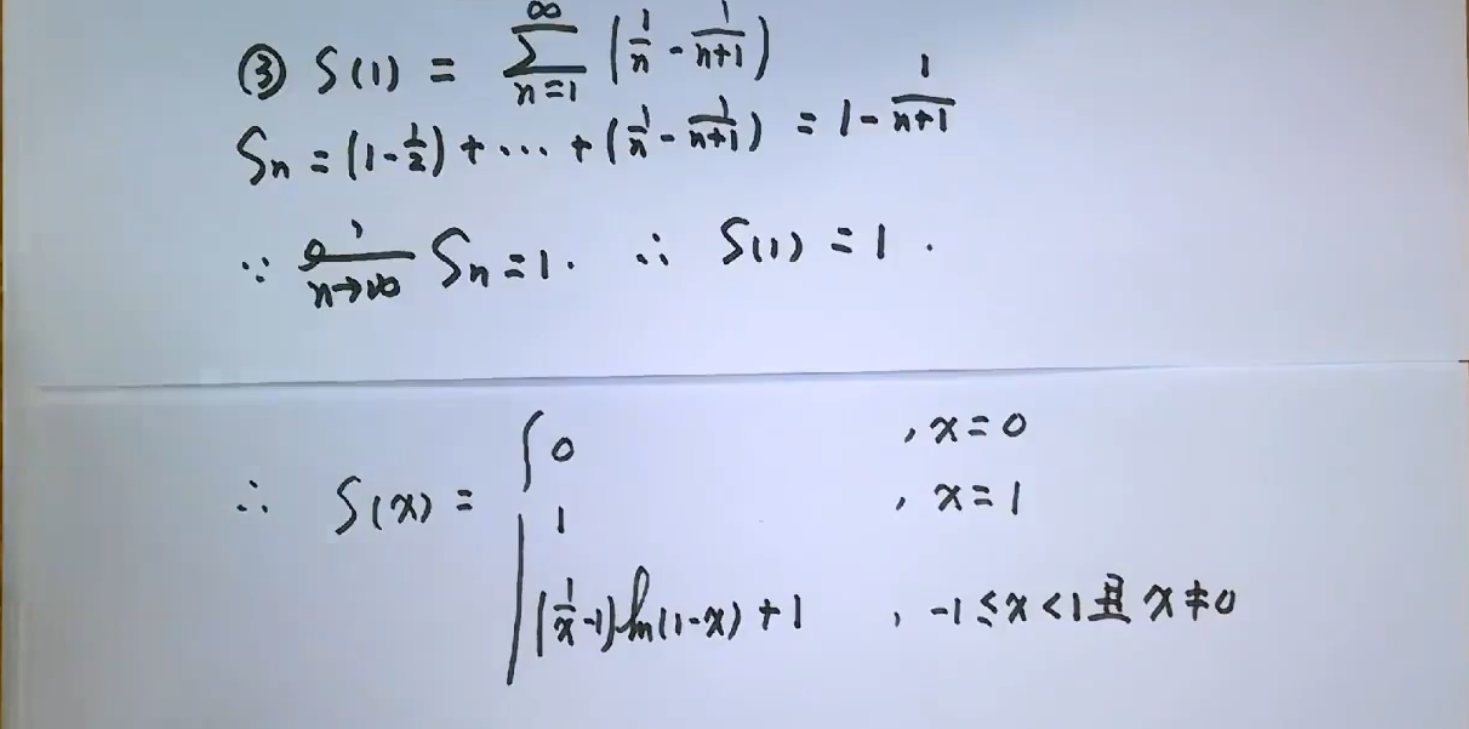 ③ S(1) = ∑_{n=1}^{∞} (1/n - 1/(n+1))
Sn = (1 - 1/2) + ... + (1/n - 1/(n+1)) = 1 - 1/(n+1)
∵ n→∞ Sn = 1. ∴ S(1) = 1.
∴ S(x) = { 0 , x = 0
1 , x = 1
(1/x - 1)ln(1-x) + 1 , -1 ≤ x < 1 且 x ≠ 0